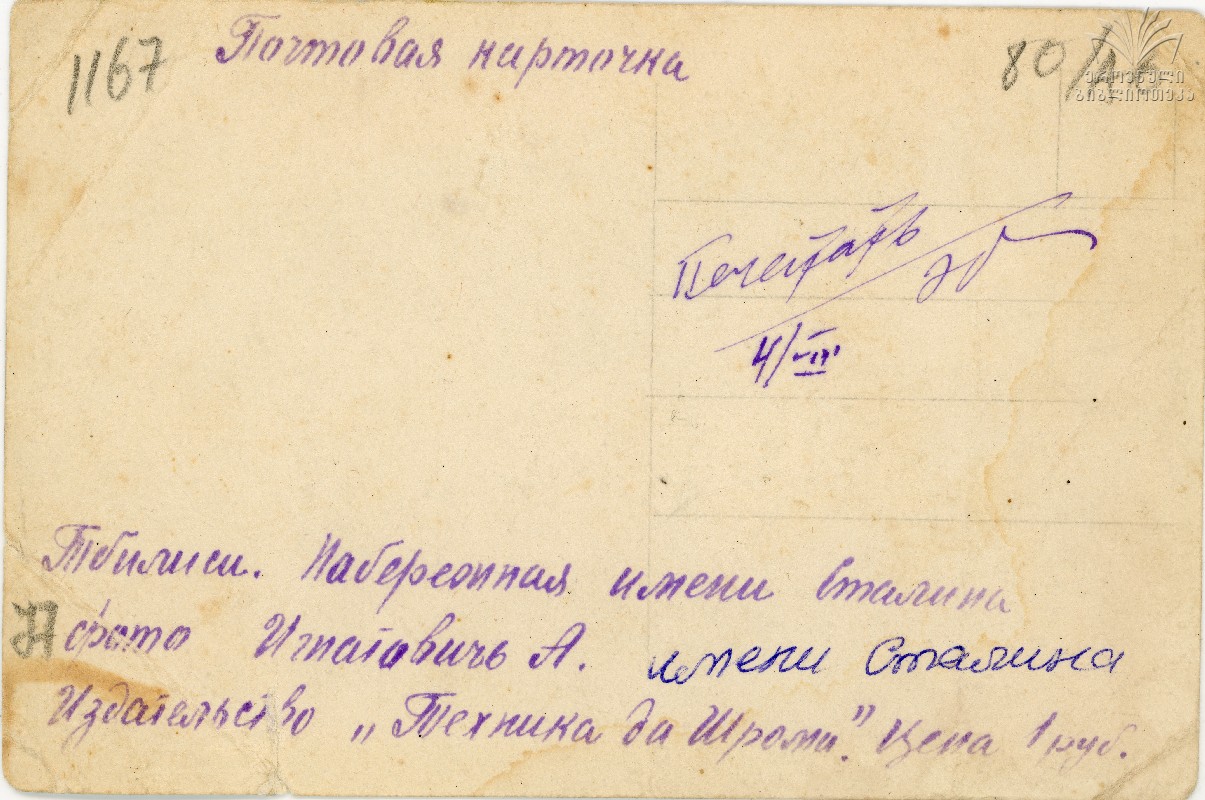 1167
Почтовая карточка
80/46
ეროვნული
ბიბლიოთეკა
Печетать
4/III
Тбилиси. Набережная имени Сталина
фото Игнатовичь А. имени Сталина
Издательство „Техника да Шрома". Цена 1 руб.